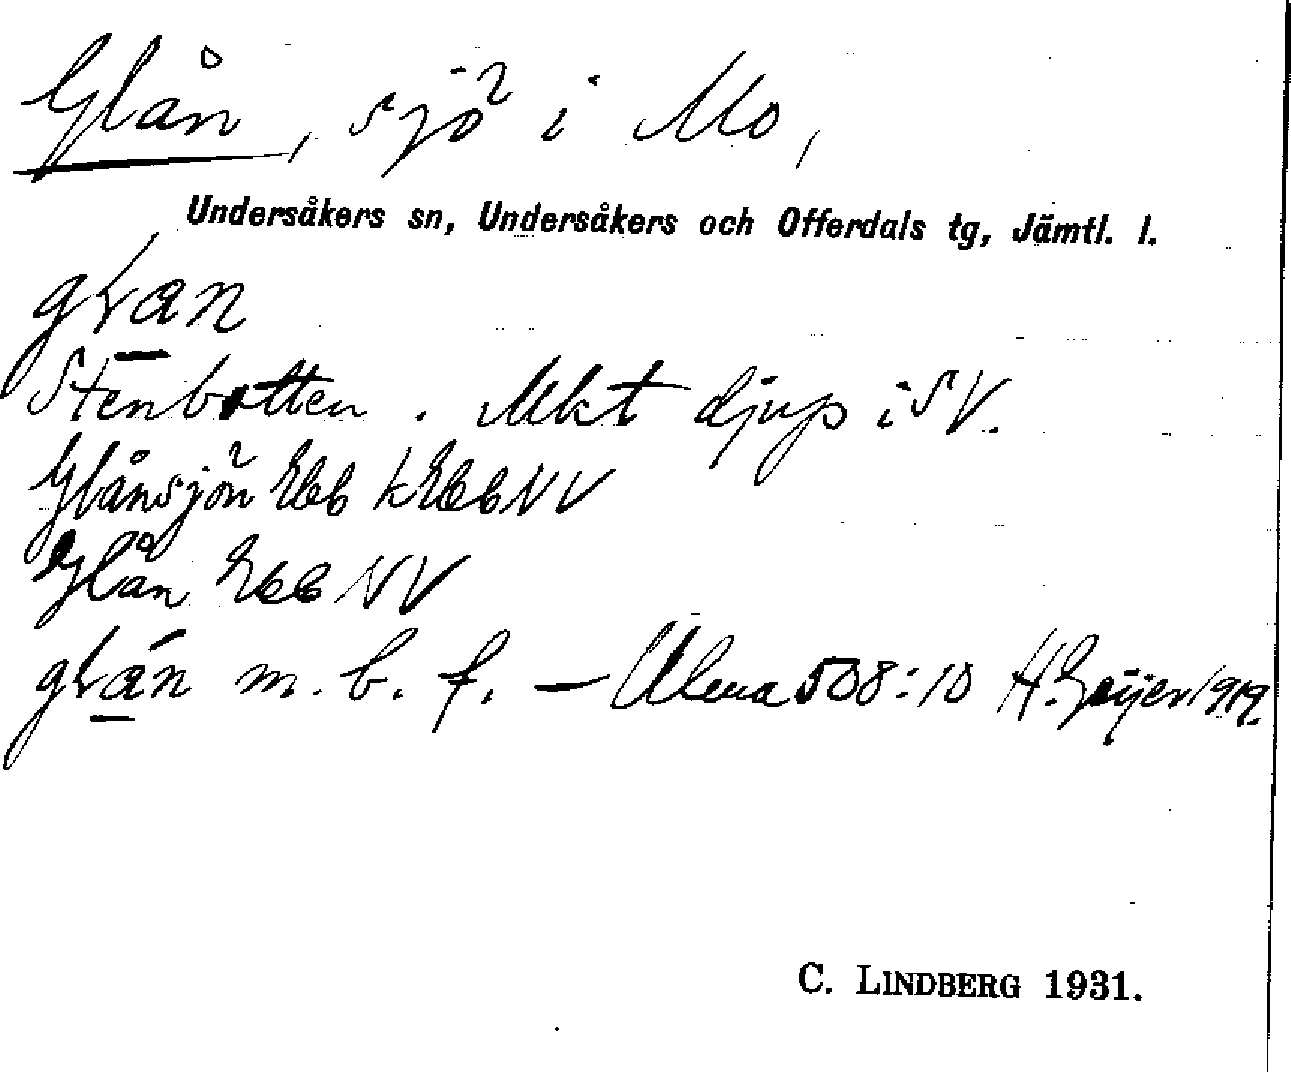 Glån, sjö i Mo,
Undersåkers sn, Undersåkers och Offerdals tg, Jämtl. l.
Stenbotten. Mkt djup i SV.
Glånsjön Ebb k Ebb NV
Glån Ebb NV
m. b. f. – Ulma 508:10 H. Geijer 1919.
C. LINDBERG 1931.